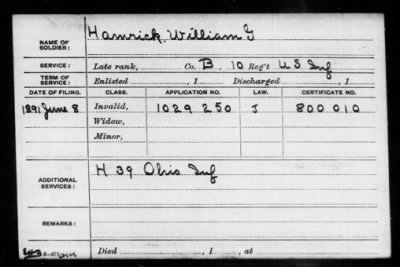 NAME OF SOLDIER: Hamrick, William G
SERVICE: Late rank, Co. B, 10 Reg't U S Inf
TERM OF SERVICE: Enlisted , 1 Discharged , 1
DATE OF FILING. CLASS. APPLICATION NO. LAW. CERTIFICATE NO.
1891 June 8 Invalid, 1029 250 J 800 010
Widow,
Minor,
ADDITIONAL SERVICES: H 39 Ohio Inf
REMARKS:
Died , 1 , at